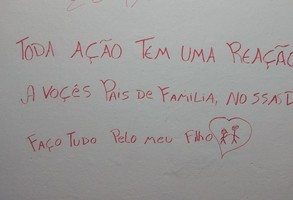 TODA AÇÃO TEM UMA REAÇÃO
A VOÇÊS PAIS DE FAMILIA, NOSSAS
FAÇO TUDO PELO MEU FILHO